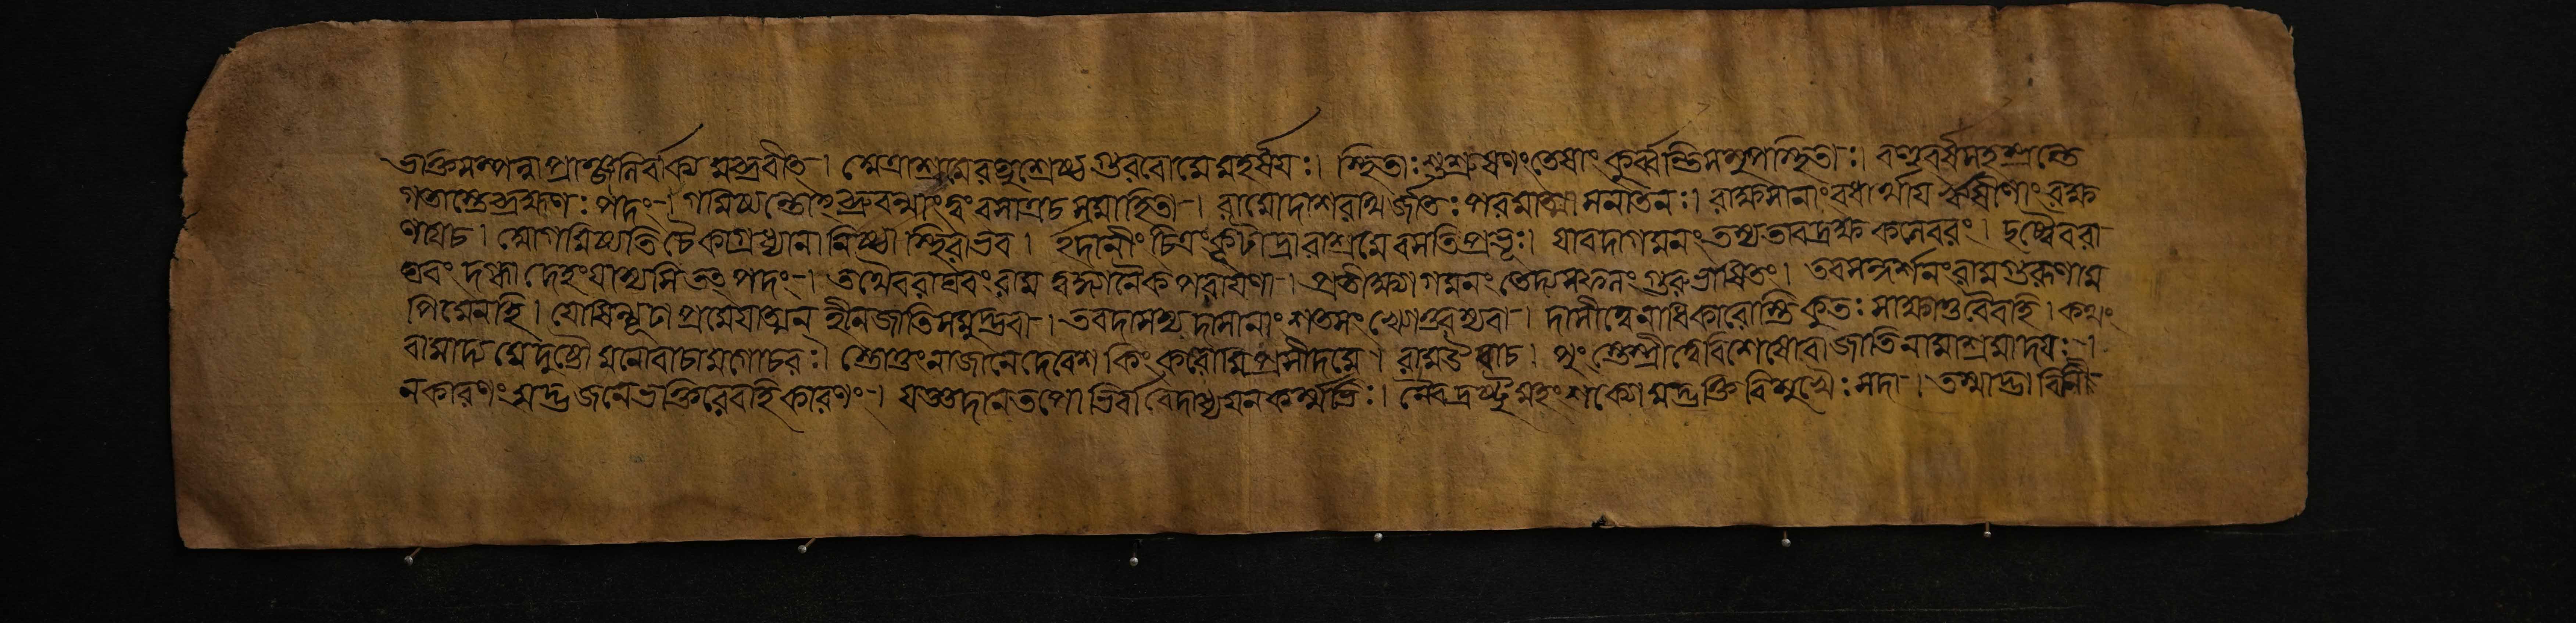 ভক্তিসম্পন্না প্রাঞ্জলির্বাক্যমব্রবীত্ । অত্রাশ্রমেরঘুশ্রেষ্ঠ গুরবোমেমহর্ষয়ঃ । স্থিতাঃ শুশ্রূষণংতেষাং কুর্ব্বন্তিসমুপস্থিতাঃ । বহুবর্ষসহস্রান্তে
গতাস্তেব্রহ্মণঃ পদং । গমিষ্যন্তোহব্রুবন্মাংত্বংবসাত্রচসমাহিতা । রামোদাশরথির্জাতঃ পরমাত্মা সনাতনঃ । রাক্ষসানাংবধার্থায় ঋষীণাংরক্ষ
ণায়চ । আগমিষ্যতি চৈকাগ্রধ্যাননিষ্ঠা স্থিরাভব । ইদানীং চিত্রংকূটাদ্রাবাশ্রমেবসতিপ্রভুঃ । যাবদাগমনংতস্যতাবদ্রক্ষ কলেবরং । দৃষ্ট্বৈবরা
ঘবং দগ্ধা দেহংযাস্যসি তত্ পদং । তথৈবরাঘবংরাম ত্বদ্ধ্যানৈকপরায়ণা । প্রতীক্ষ্যাগমনং তেদ্যসফলং গুরুভাষিতং । তবসন্দর্শনংরামগুরূণাম
পিমেনহি । যোষিন্মূঢাপ্রমেয়াত্মন্ হীনজাতিসমুদ্ভবা । তবদাসস্য দাসানাং শতসংখ্যোত্তরস্যবা । দাসীত্বেনাধিকারোস্তি কুতঃ সাক্ষাত্তবৈবহি । কথং
রামাদ্যমেদৃষ্টো মনোবাচামগোচরঃ । স্তোতুংনজানেদেবেশ কিংকরোমিপ্রসীদমে । রামউবাচ । পুংস্ত্বেস্ত্রীত্বেবিশেষোবা জাতিনামাশ্রমাদয়ঃ ।
নকারণংমদ্ভজনেভক্তিরেবহিকারণং । যজ্ঞদানতপোভির্বা বেদাধ্যয়নকর্ম্মভিঃ । নৈবদ্রষ্টুমহংশক্যো মদ্ভক্তিবিমুখৈঃ সদা । তস্মাদ্ভাবিনী